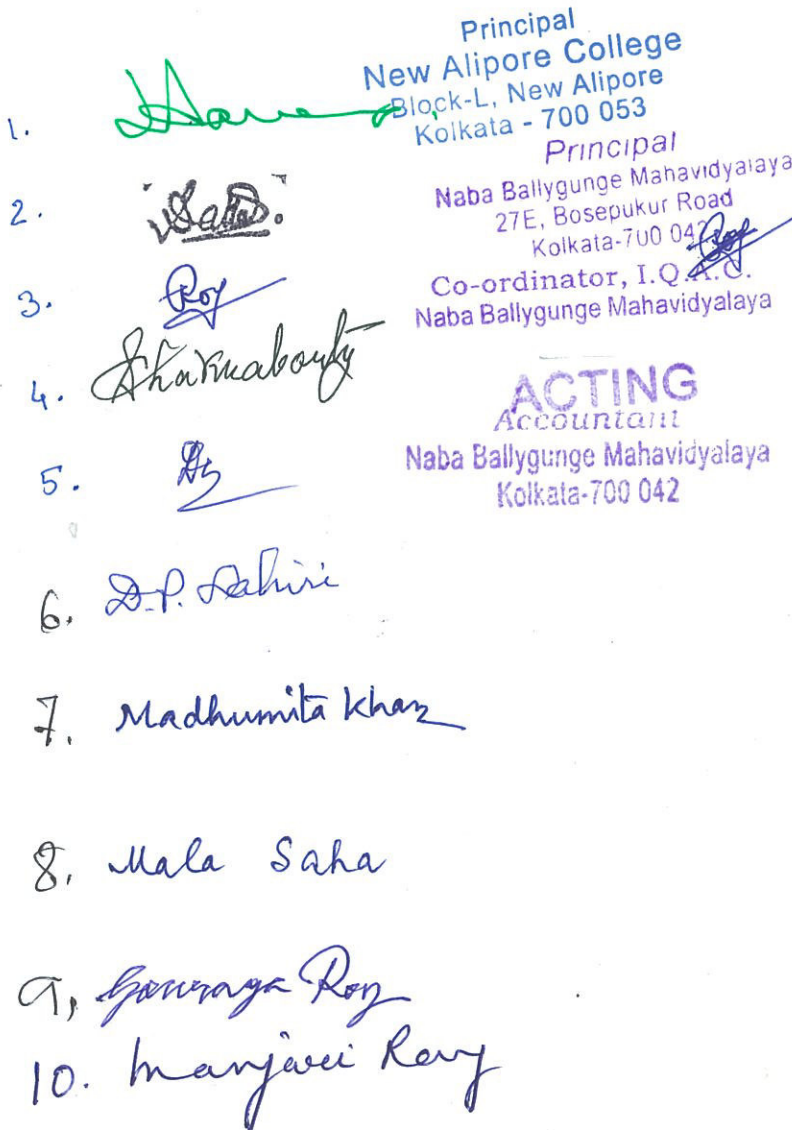 Principal
New Alipore College
Block-L, New Alipore
Kolkata - 700 053
1.
Principal
Naba Ballygunge Mahavidyalaya
27E, Bosepukur Road
Kolkata-700 042
2.
Co-ordinator, I.Q.A.C.
Naba Ballygunge Mahavidyalaya
3. Roy
4. Chakraborty
ACTING
Accountant
Naba Ballygunge Mahavidyalaya
Kolkata-700 042
5.
6. D.P. Lahiri
7. Madhumita Khan
8. Mala Saha
9, Roy
10. Manjari